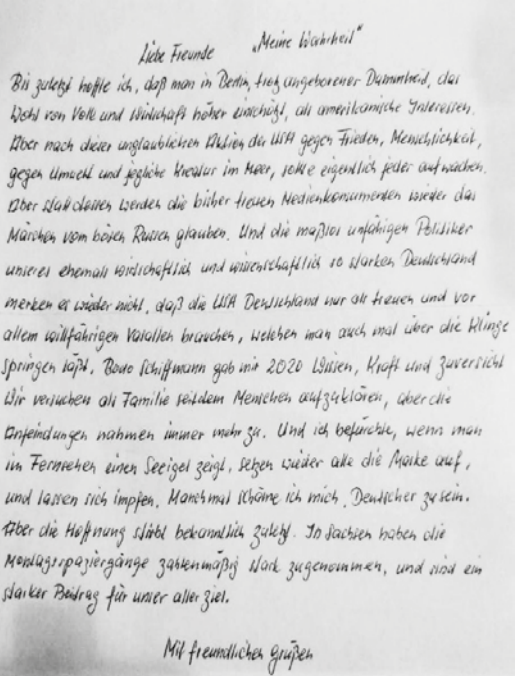 Liebe Freunde „Meine Wahrheit"
Bis zuletzt hoffte ich, daß man in Berlin, trotz angeborener Dummheit, das
Wohl von Volk und Wirtschaft höher einschätzt, als amerikanische Interessen.
Aber nach dieser unglaublichen Aktion der USA gegen Frieden, Menschlichkeit,
gegen Umwelt und jegliche Kreatur im Meer, sollte eigentlich jeder aufwachen.
Aber stattdessen werden die bisher treuen Medienkonsumenten wieder das
Märchen vom bösen Russen glauben. Und die maßlos unfähigen Politiker
unseres ehemals wirtschaftlich und wissenschaftlich so starken Deutschland
merken es wieder nicht, daß die USA Deutschland nur als treuen und vor
allem willfährigen Vasallen brauchen, welchen man auch mal über die Klinge
springen läßt. Bodo Schiffmann gab mir 2020 Wissen, Kraft und Zuversicht
Wir versuchen als Familie seitdem Menschen aufzuklären, aber die
Anfeindungen nahmen immer mehr zu. Und ich befürchte, wenn man
im Fernsehen einen Seeigel zeigt, setzen wieder alle die Maske auf,
und lassen sich impfen. Manchmal schäme ich mich, Deutscher zu sein.
Aber die Hoffnung stirbt bekanntlich zuletzt. In Sachsen haben die
Montagsspaziergänge zahlenmäßig stark zugenommen, und sind ein
starker Beitrag für unser aller Ziel.
Mit freundlichen Grüßen